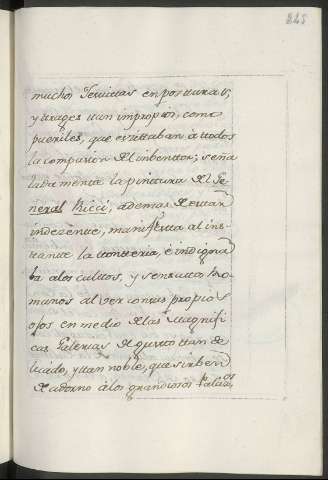 825
muchos Jesuitas en posturas,
y trages tan impropios, como
pueriles, que exsitaban à todos
la compasion del inbentor; seña
ladamente la pinctura del Ge
neral Ricci, ademas de estar
indezente, manifiesta al ins-
tante la tonteria, è indigna
ba a los cultos, y sensatos Ro
manos al ver con sus propios
ojos en medio de las magnifi
cas Galerias de gusto tan de
licado, y tan noble, que sirben
de adorno à los grandiosos Palazos